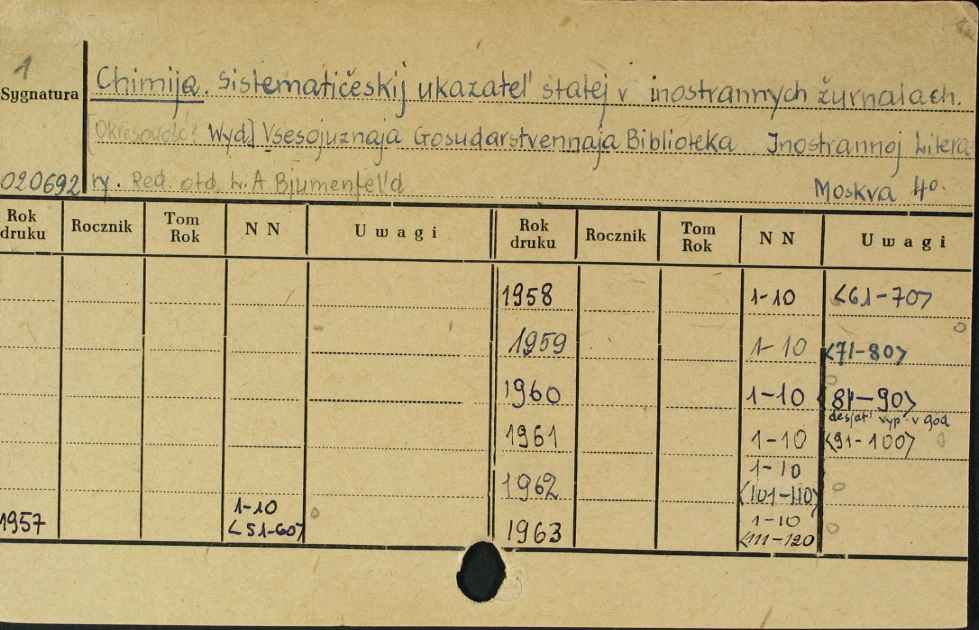 1
Chimija. Sistematičeskij ukazatel' statej v inostrannych žurnalach.
Sygnatura
[Okresowość? Wyd.] Vsesojuznaja Gosudarstvennaja Biblioteka Inostrannoj Litera
020692 ry. Red. otd. L. A. Bljumenfel'd Moskva 4º.
Rok druku Rocznik Tom Rok N N Uwagi Rok druku Rocznik Tom Rok N N Uwagi
1958 1-10 <61-70>
1959 1-10 <71-80>
1960 1-10 <81-90>
desjat' vyp. v god
1961 1-10 <91-100>
1962 1-10 <101-110>
1957 1-10 <51-60> 1963 1-10 <111-120